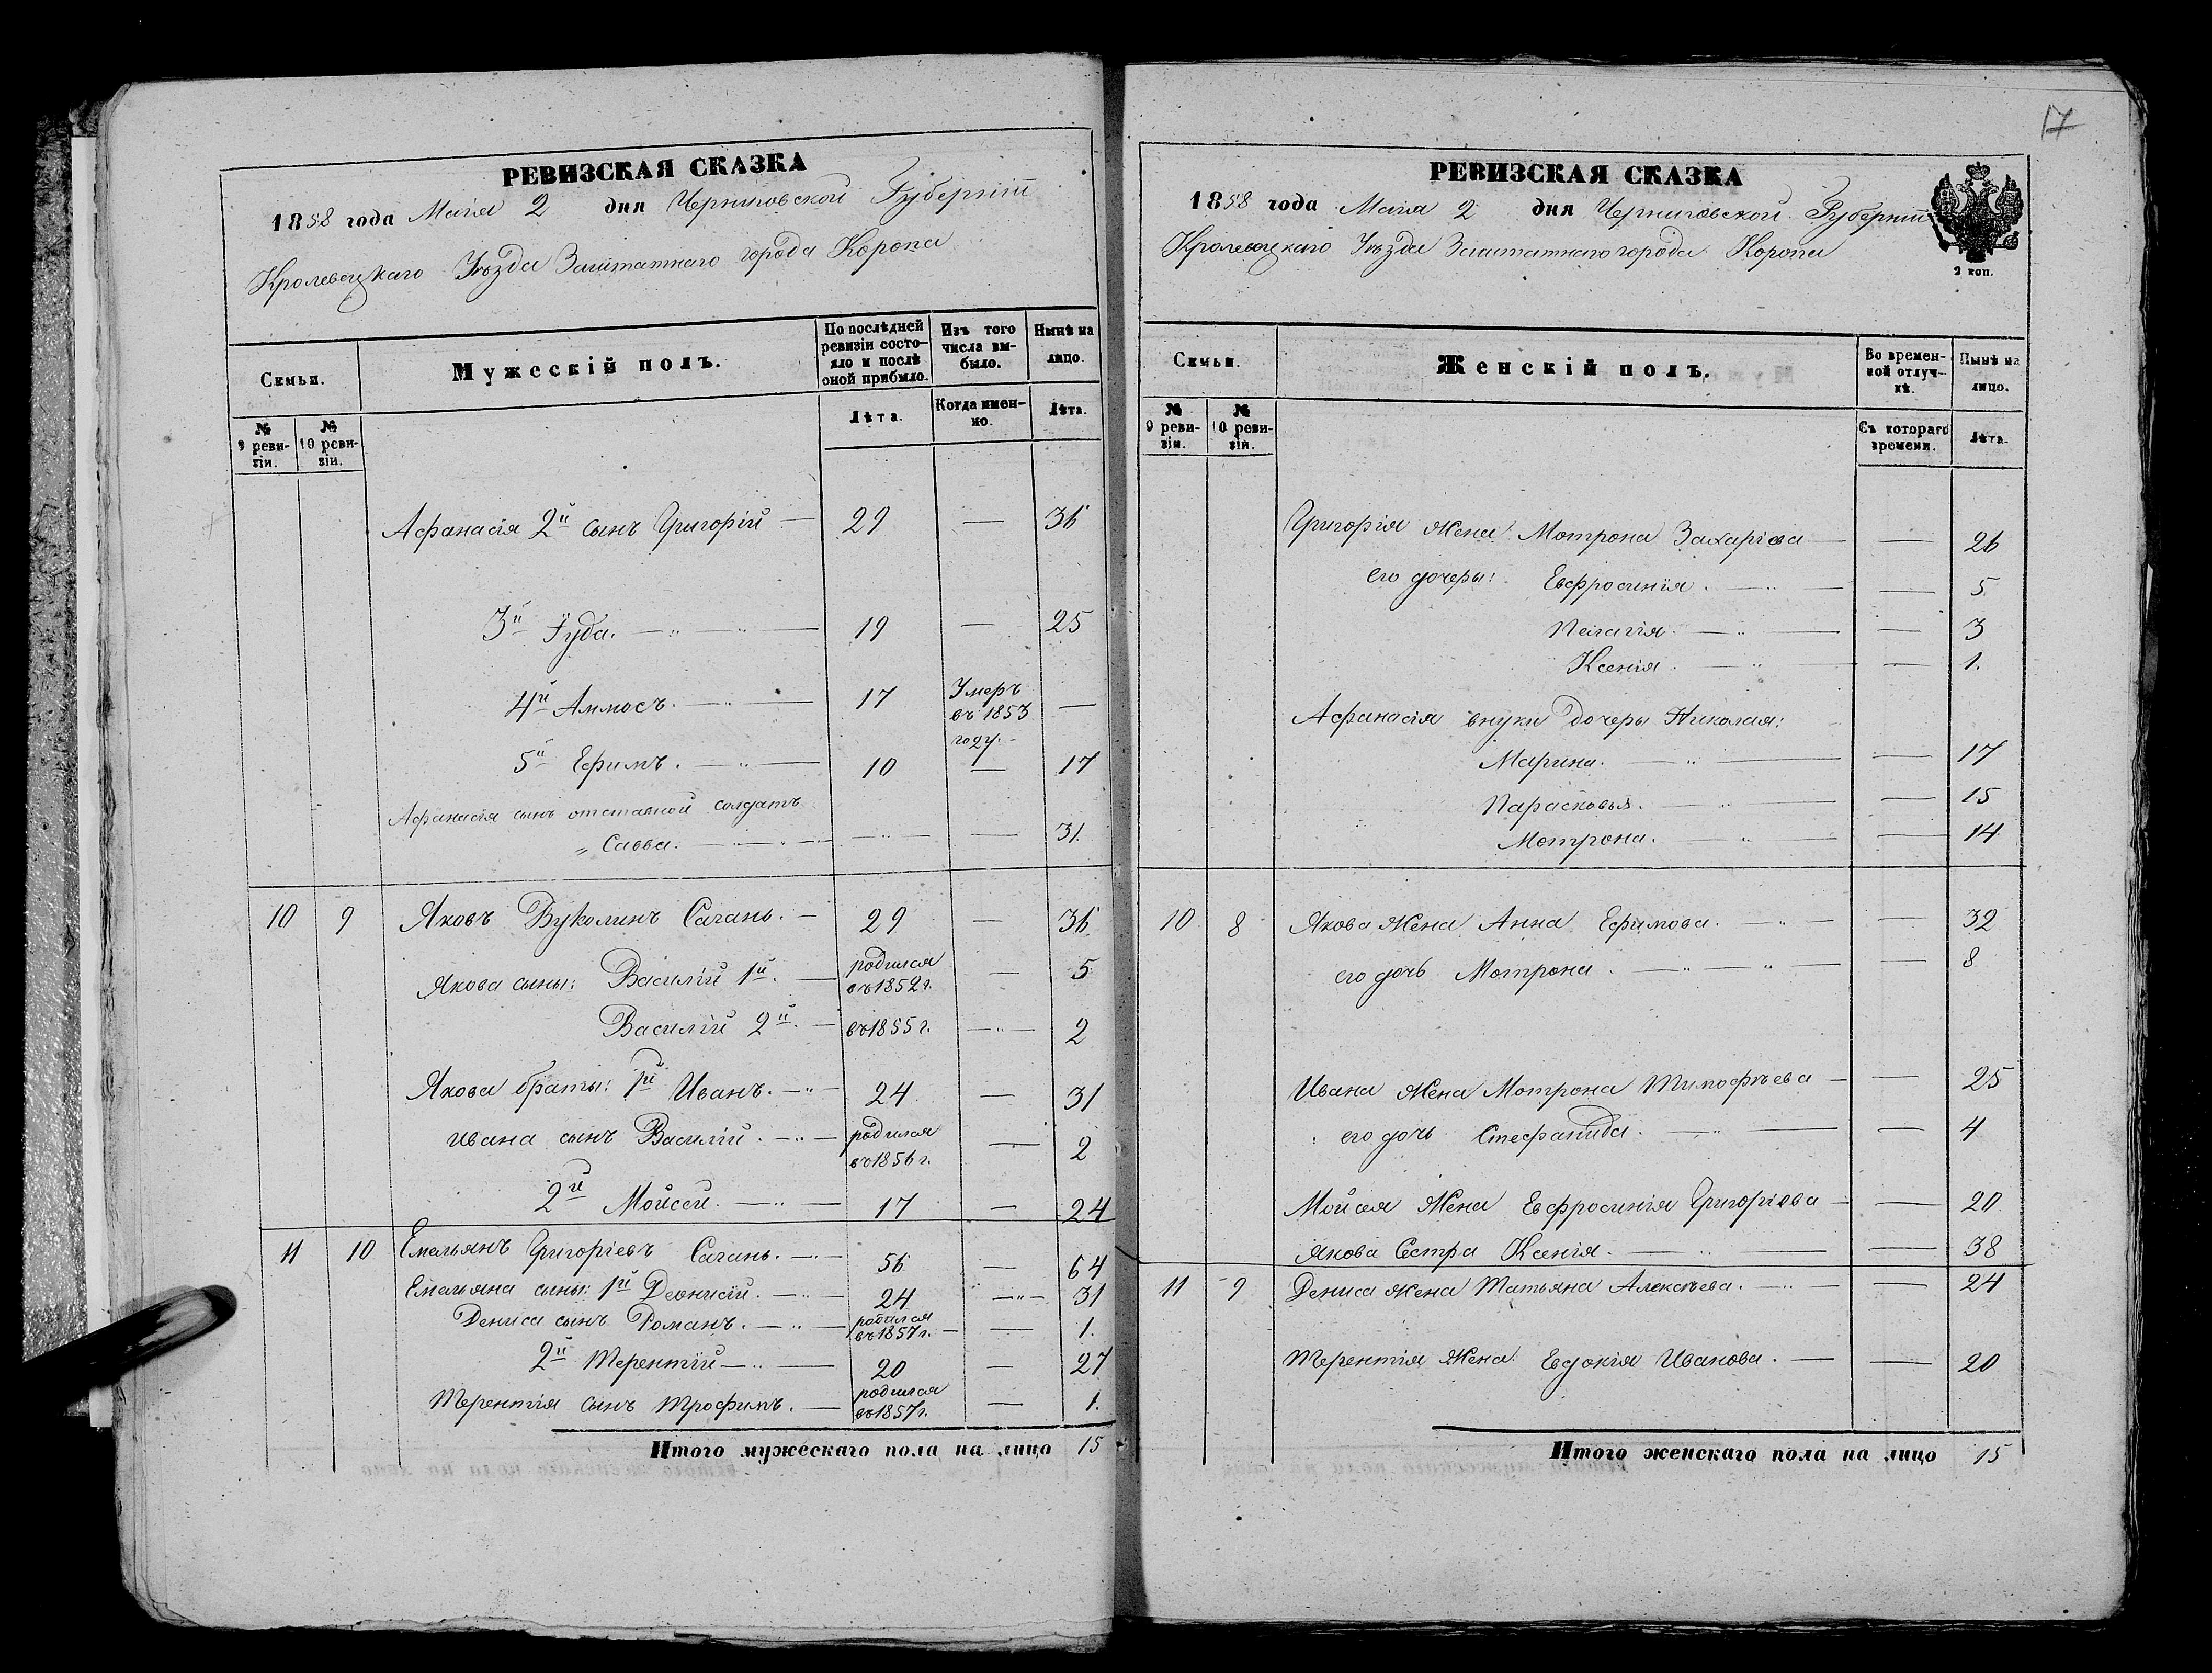 РЕВИЗСКАЯ СКАЗКА
1858 года Маія 2 дня Черниговской Губерніи
Кролевецкаго Уѣзда Заштатнаго города Коропа
Семьи.
Мужескій полъ.
По послѣдней ревизіи состояло и послѣ оной прибыло.
Изъ того числа выбыло.
Нынѣ на лицо.
№ 9 ревизіи.
№ 10 ревизіи.
Лѣта.
Когда именно.
Лѣта.
Афанасія 2й сынъ Григорій — 29 — 36
3й Іуда. — 19 — 25
4й Аммосъ. — 17 Умеръ въ 1853 году. —
5й Ефимъ. — 10 — 17
Афанасія сынъ отставной солдатъ
„ Савва. — — — 31.
10 9 Яковъ Вуколинъ Сагань. — 29 — 36
Якова сыны: Василій 1й. — родился въ 1852 г. — 5
Василій 2й. — въ 1855 г. — 2
Якова браты: 1й Иванъ. — 24 — 31
Ивана сынъ Василій. — родился въ 1856 г. — 2
2й Мойсей. — 17 — 24
11 10 Емельянъ Григоріевъ Сагань. — 56 — 64
Емельяна сыны: 1й Деонисій. — 24 — 31
Дениса сынъ Романъ. — родился въ 1857 г. — 1.
2й Терентій — 20 — 27
Терентія сынъ Трофимъ. — родился въ 1857 г. — 1.
Итого мужескаго пола на лицо 15
17
РЕВИЗСКАЯ СКАЗКА
1858 года Маія 2 дня Черниговской Губерніи
Кролевецкаго Уѣзда Заштатнаго города Коропа
2 коп.
Семьи.
Женскій полъ.
Во временной отлучкѣ.
Нынѣ на лицо.
№ 9 ревизіи.
№ 10 ревизіи.
Съ котораго времени.
Лѣта.
Григорія жена Мотрона Захаріева — — 26
его дочеры: Евфросинія. — — 5
Пелагія. — — 3
Ксенія. — — 1.
Афанасія внуки дочеры Николая:
Марина. — — 17
Парасковья. — — 15
Мотрона. — — 14
10 8 Якова жена Анна Ефимова. — — 32
его дочь Мотрона. — — 8
Ивана жена Мотрона Тимофѣева — — 25
его дочь Стефанида. — — 4
Мойсея жена Евфросинія Григоріева — — 20
Якова сестра Ксенія. — — 38
11 9 Дениса жена Татьяна Алексѣева. — — 24
Терентія жена Евдокія Иванова. — — 20
Итого женскаго пола на лицо 15